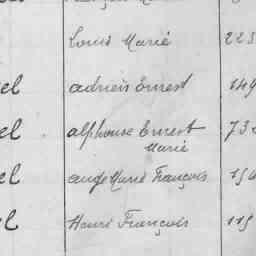 Louis Marie 223
el adrien Ernest 149
el alphonse Ernest 73
Marie
el ange Marie François 154
el Henri François 115